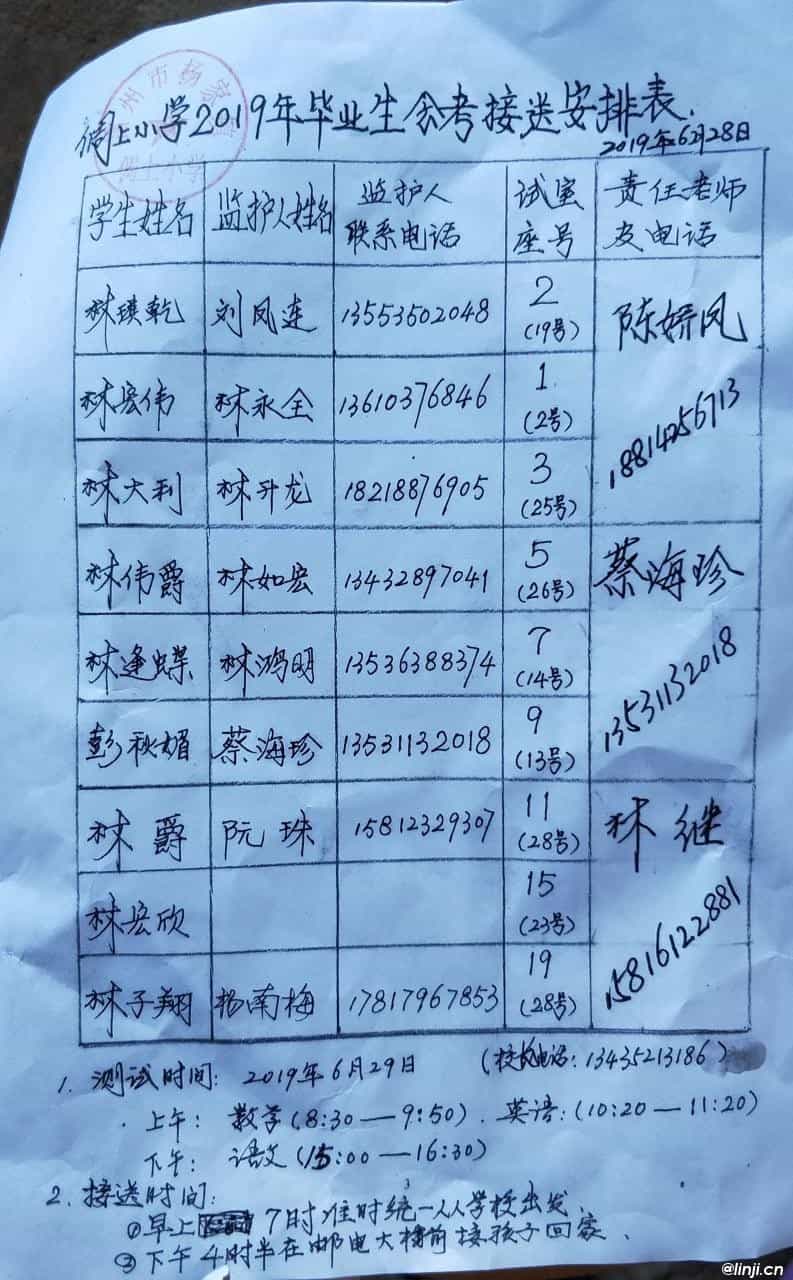 州市杨家
倜上小学
倜上小学2019年毕业生会考接送安排表.
2019年6月28日
学生姓名 监护人姓名 监护人联系电话 试室座号 责任老师及电话
林瑛乾 刘凤连 13553502048 2(19号) 陈娇凤
林宏伟 林永全 13610376846 1(2号) 18814256713
林大利 林升龙 18218876905 3(25号)
林伟爵 林如宏 13432897041 5(26号) 蔡海珍
林逢蝶 林鸿明 13536388374 7(14号) 13531132018
彭秋媚 蔡海珍 13531132018 9(13号)
林爵 阮珠 15812329307 11(28号) 林继
林宏欣 15(23号) 15816122881
林子翔 杨南梅 17817967853 19(28号)
1. 测试时间: 2019年6月29日 (校长电话:13435213186)
上午: 数学(8:30—9:50). 英语:(10:20—11:20)
下午: 语文(15:00—16:30)
2. 接送时间:
①早上 7时准时统一从学校出发.
②下午4时半在邮电大楼前接孩子回家.
@linji.cn